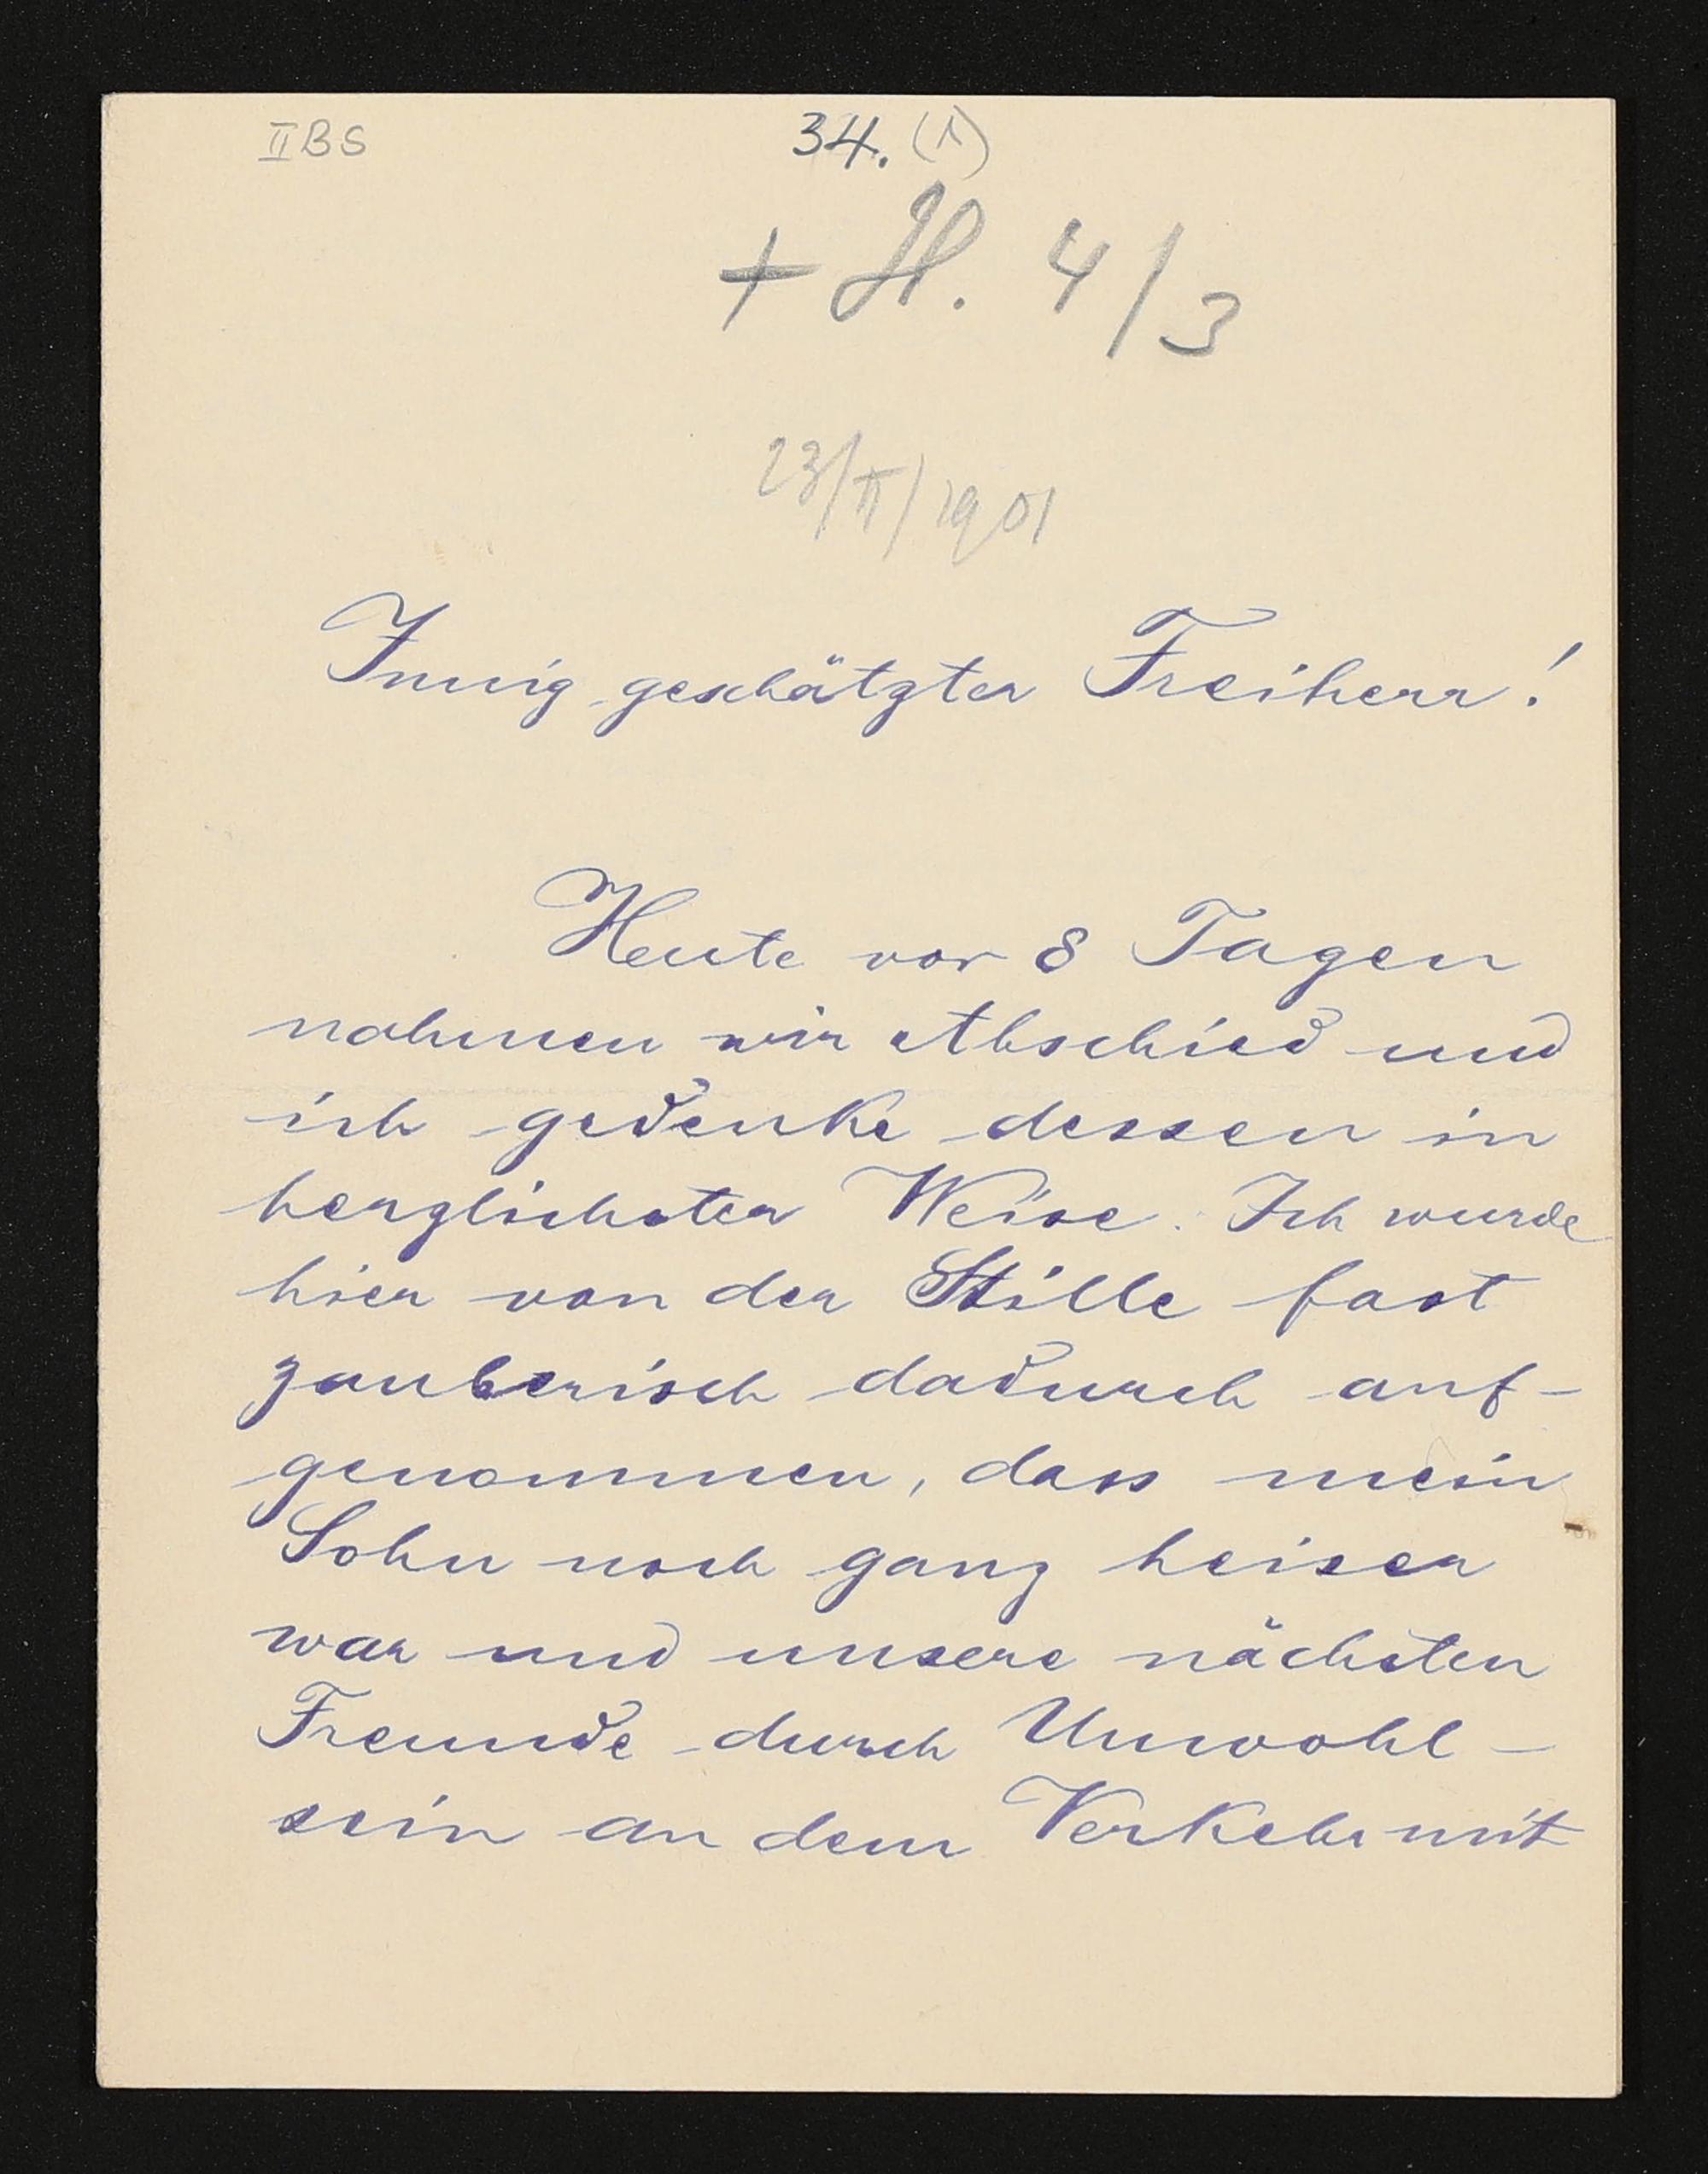 II BS
34. (1)
+ H. 4/3
23/II/1901
Innig geschätzter Freiherr!
Heute vor 8 Tagen
nahmen wir Abschied und
ich gedenke dessen in
herzlichster Weise. Ich wurde
hier von der Stille fast
zauberisch dadurch auf-
genommen, dass mein
Sohn noch ganz heiser
war und unsere nächsten
Freunde durch Unwohl-
sein an dem Verkehr mit